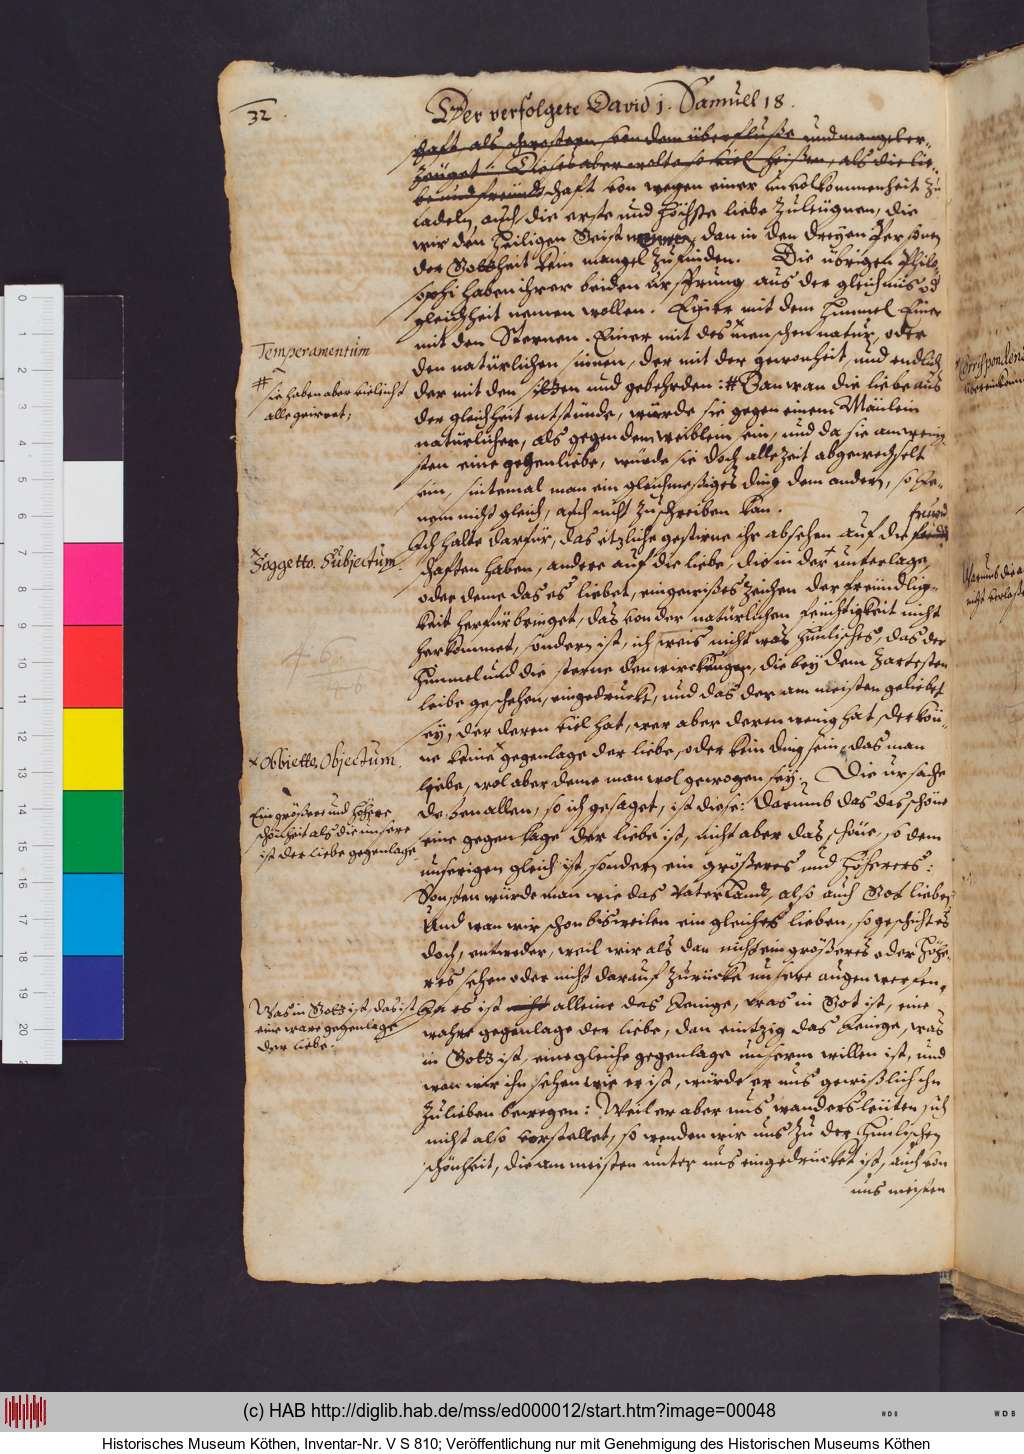 32.
Der verfolgete David 1. Samuel 18.
schaft als schwestern von dem überfluße und mangel er-
zeüget: Dieses aber wolte so viel heißen, als die lie-
be und freündschaft von wegen einer unvolkommenheit zu
tadeln, auch die erste und höchste liebe zuleügnen, die
wir den heiligen Geist nennen, dan in den dreyen Personen
der Gottheit kein mangel zufinden. Die übrigen Philo
sophi haben ihrer beiden ursprung aus der gleichnüs od
gleichheit nemen wollen. Einer mit dem himmel Einer
mit den Sternen. Einer mit des menschen natur, oder
den natürlichen sinnen, der mit der gewonheit, und endlich
der mit den sitten und gebehrden: # Dan wan die liebe aus
der gleichheit entstünde, würde sie gegen einem Mänlein
natürlicher, als gegen dem weiblein sein, und da sie am wenig
sten eine gegenliebe, würde sie doch allezeit abgewechselt
sein, sintemal man ein gleichmeßiges ding dem andern, so jhe-
nem nicht gleich, auch nicht zuschreiben kan.
Ich halte darfür, das etzliche gestirne ihr absehen auf die freünd
schaften haben, andere auf die liebe, die in der unterlage,
oder deme das es liebet, ein gewißes zeichen der freündlig-
keit herfürbringet, das von der natürlichen feüchtigkeit nicht
herkommet, sondern ist, ich weis nicht was himlisches, das der
himmel und die sterne den wirckungen, die bey dem zartesten
leibe geschehen, eingedruckt, und das der am meisten geliebet
sey, der deren viel hat, wer aber deren wenig hat, der kön-
ne keine gegenlage der liebe, oder kein ding sein, das man
liebe, wol aber deme man wol gewogen sey. Die ursache
deßen allen, so ich gesaget, ist diese: Darumb das das schöne
eine gegenlage der liebe ist, nicht aber das schöne, so dem
unserigen gleich ist, sondern ein größeres und höheres:
Sonsten würde man wie das Vaterland, also auch Got lieben
Und wan wir schon bisweilen ein gleiches lieben, so geschicht es
doch, entweder, weil wir als dan nicht ein größeres oder höhe-
res sehen oder nicht darauf zurücke unsere augen werfen,
Ja es ist nicht alleine das Jenige, was in Got ist, eine
wahre gegenlage der liebe, dan eintzig das Jenige, was
in Gott ist, eine gleiche gegenlage unserm willen ist, und
wan wir ihn sehen wie er ist, würde er uns gewißlich ihn
zulieben bewegen: Weil er aber uns wandersleüten sich
nicht also vorstellet, so wenden wir uns zu der himlischen
schönheit, die am meisten unter uns eingedrucket ist, auch von
uns meisten
Temperamentum
# sie haben aber vieleicht
alle geirret;
Soggetto. Subjectum.
Obbietto, Objectum.
Ein größere und höhere
schönheit als die unsere
ist der liebe gegenlage
Was in Gott ist, das ist
eine ware gegenlage
der liebe.
0 1 2 3 4 5 6 7 8 9 10 11 12 13 14 15 16 17 18 19 20
(c) HAB http://diglib.hab.de/mss/ed000012/start.htm?image=00048
WDB
WDB
Historisches Museum Köthen, Inventar-Nr. V S 810; Veröffentlichung nur mit Genehmigung des Historischen Museums Köthen